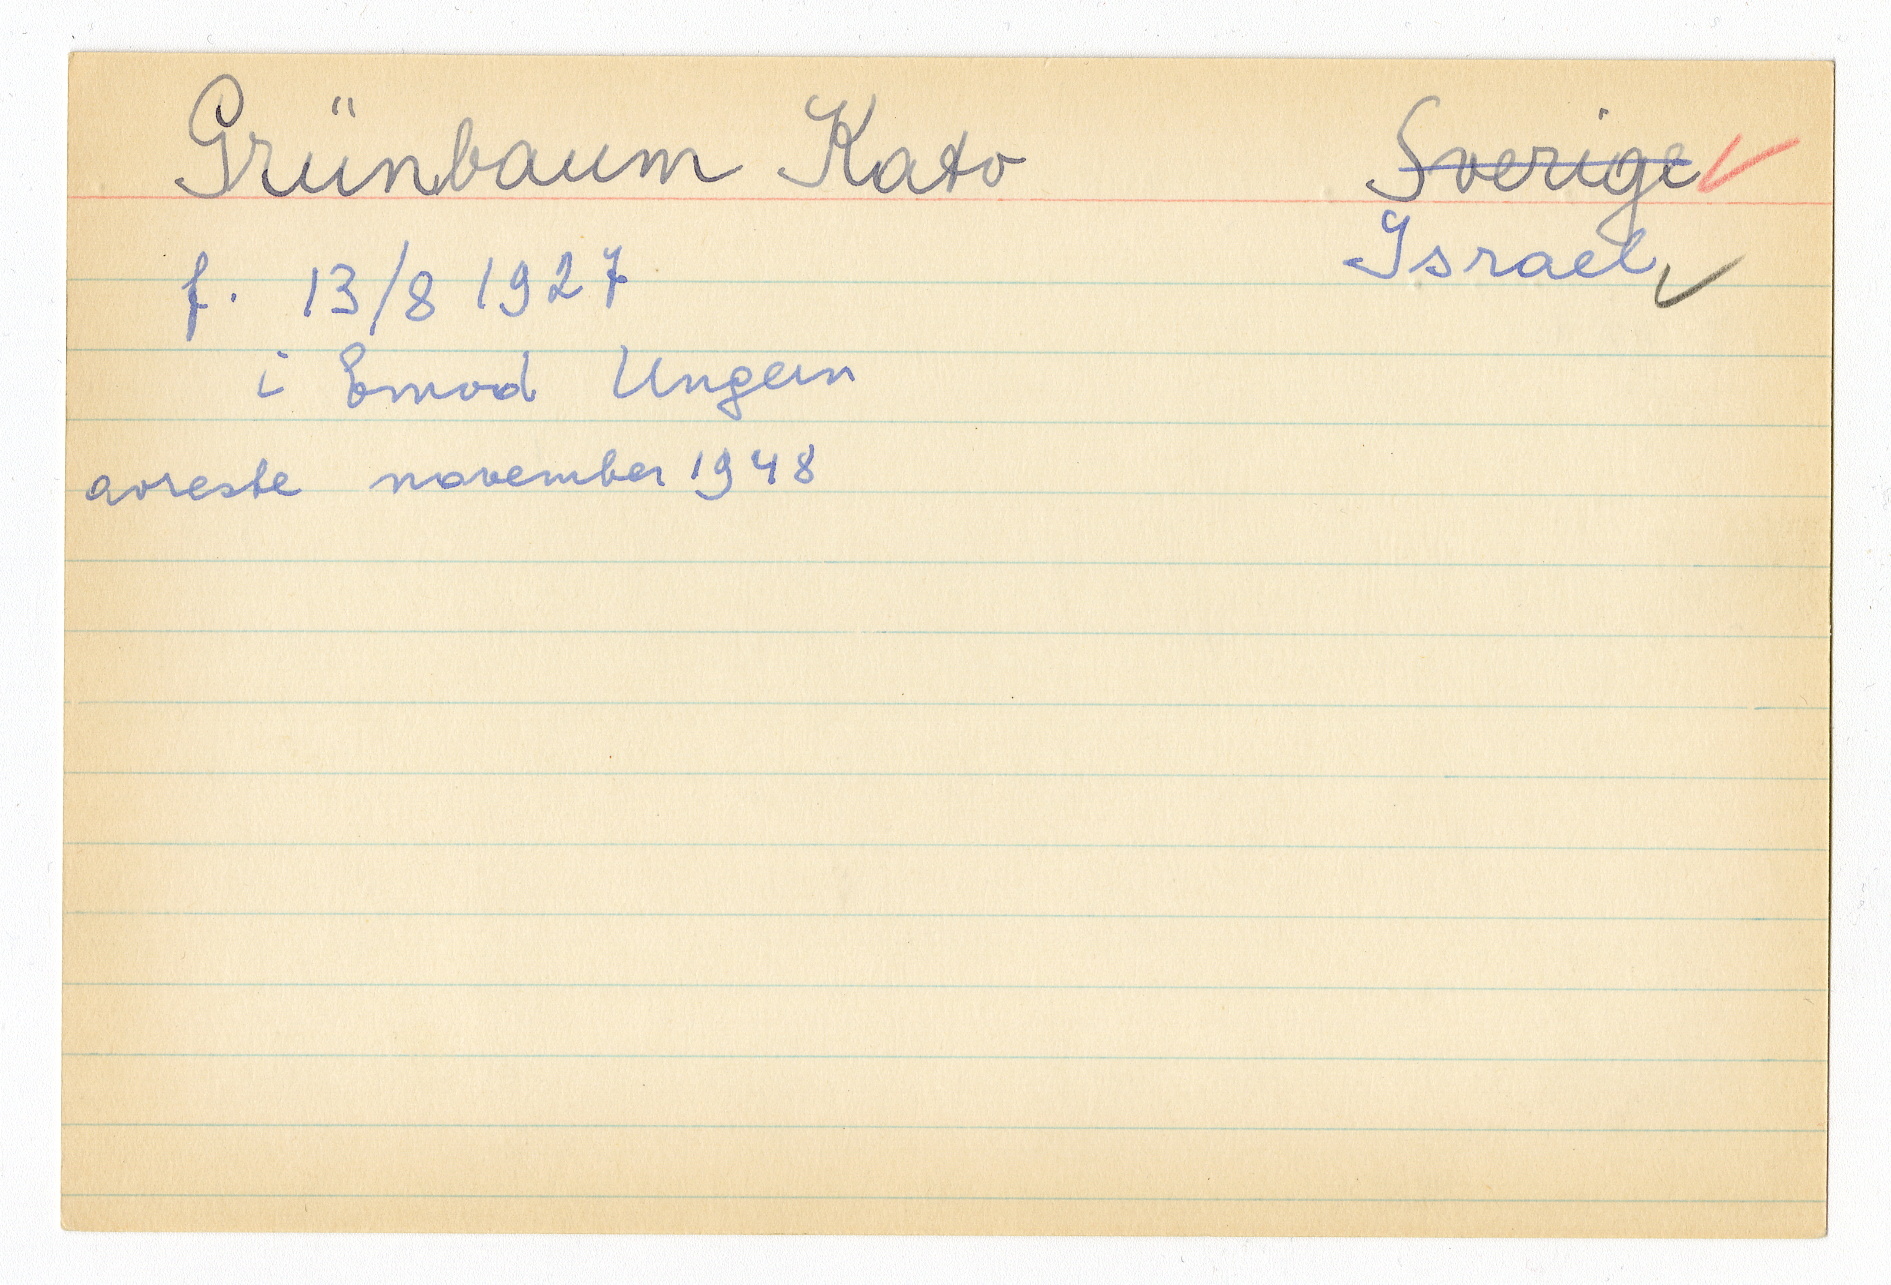 Grünbaum Kato Sverige
Israel
f. 13/8 1927
i Emod Ungern
avreste november 1948